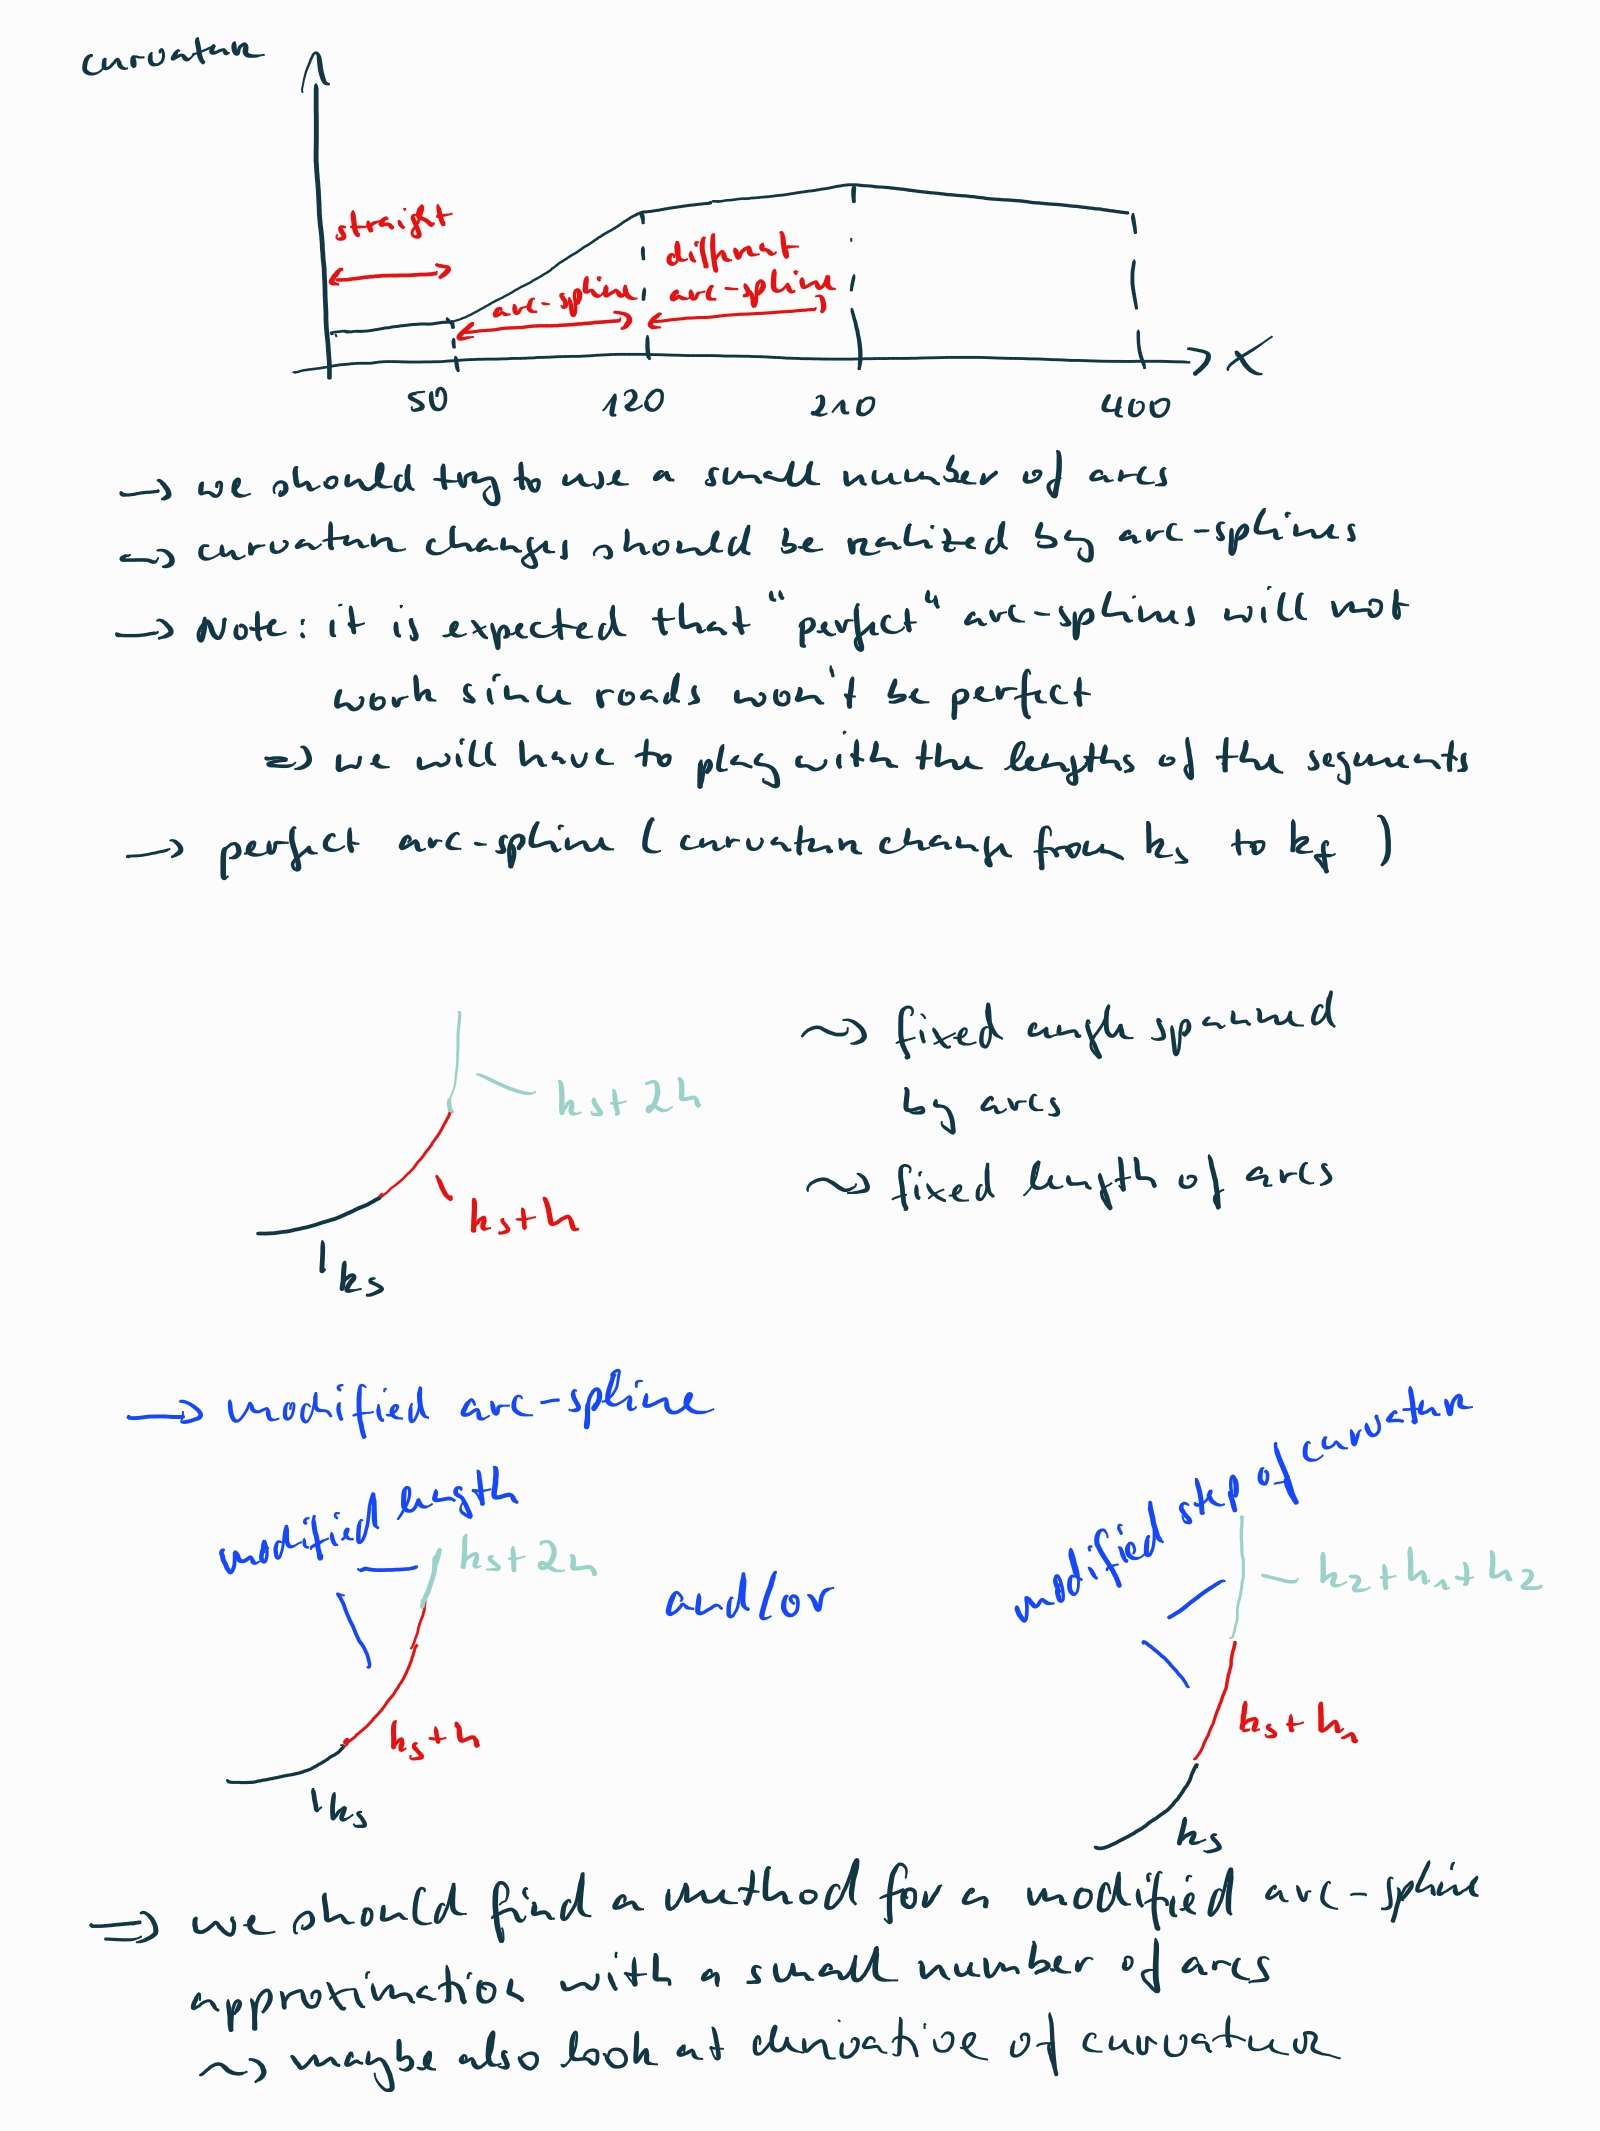 curvature
straight
different
arc-spline
arc-spline
x
50 120 210 400
→ we should try to use a small number of arcs
→ curvature changes should be realized by arc-splines
→ Note: it is expected that "perfect" arc-splines will not
work since roads won't be perfect
=> we will have to play with the lengths of the segments
→ perfect arc-spline (curvature change from ks to kf)
~> fixed angle spanned
by arcs
ks+2h
~> fixed length of arcs
ks+h
ks
→ modified arc-spline
modified length
modified step of curvature
ks+2h
and/or
k2+h1+h2
ks+h
ks+h1
ks
ks
=> we should find a method for a modified arc-spline
approximation with a small number of arcs
~> maybe also look at derivative of curvature